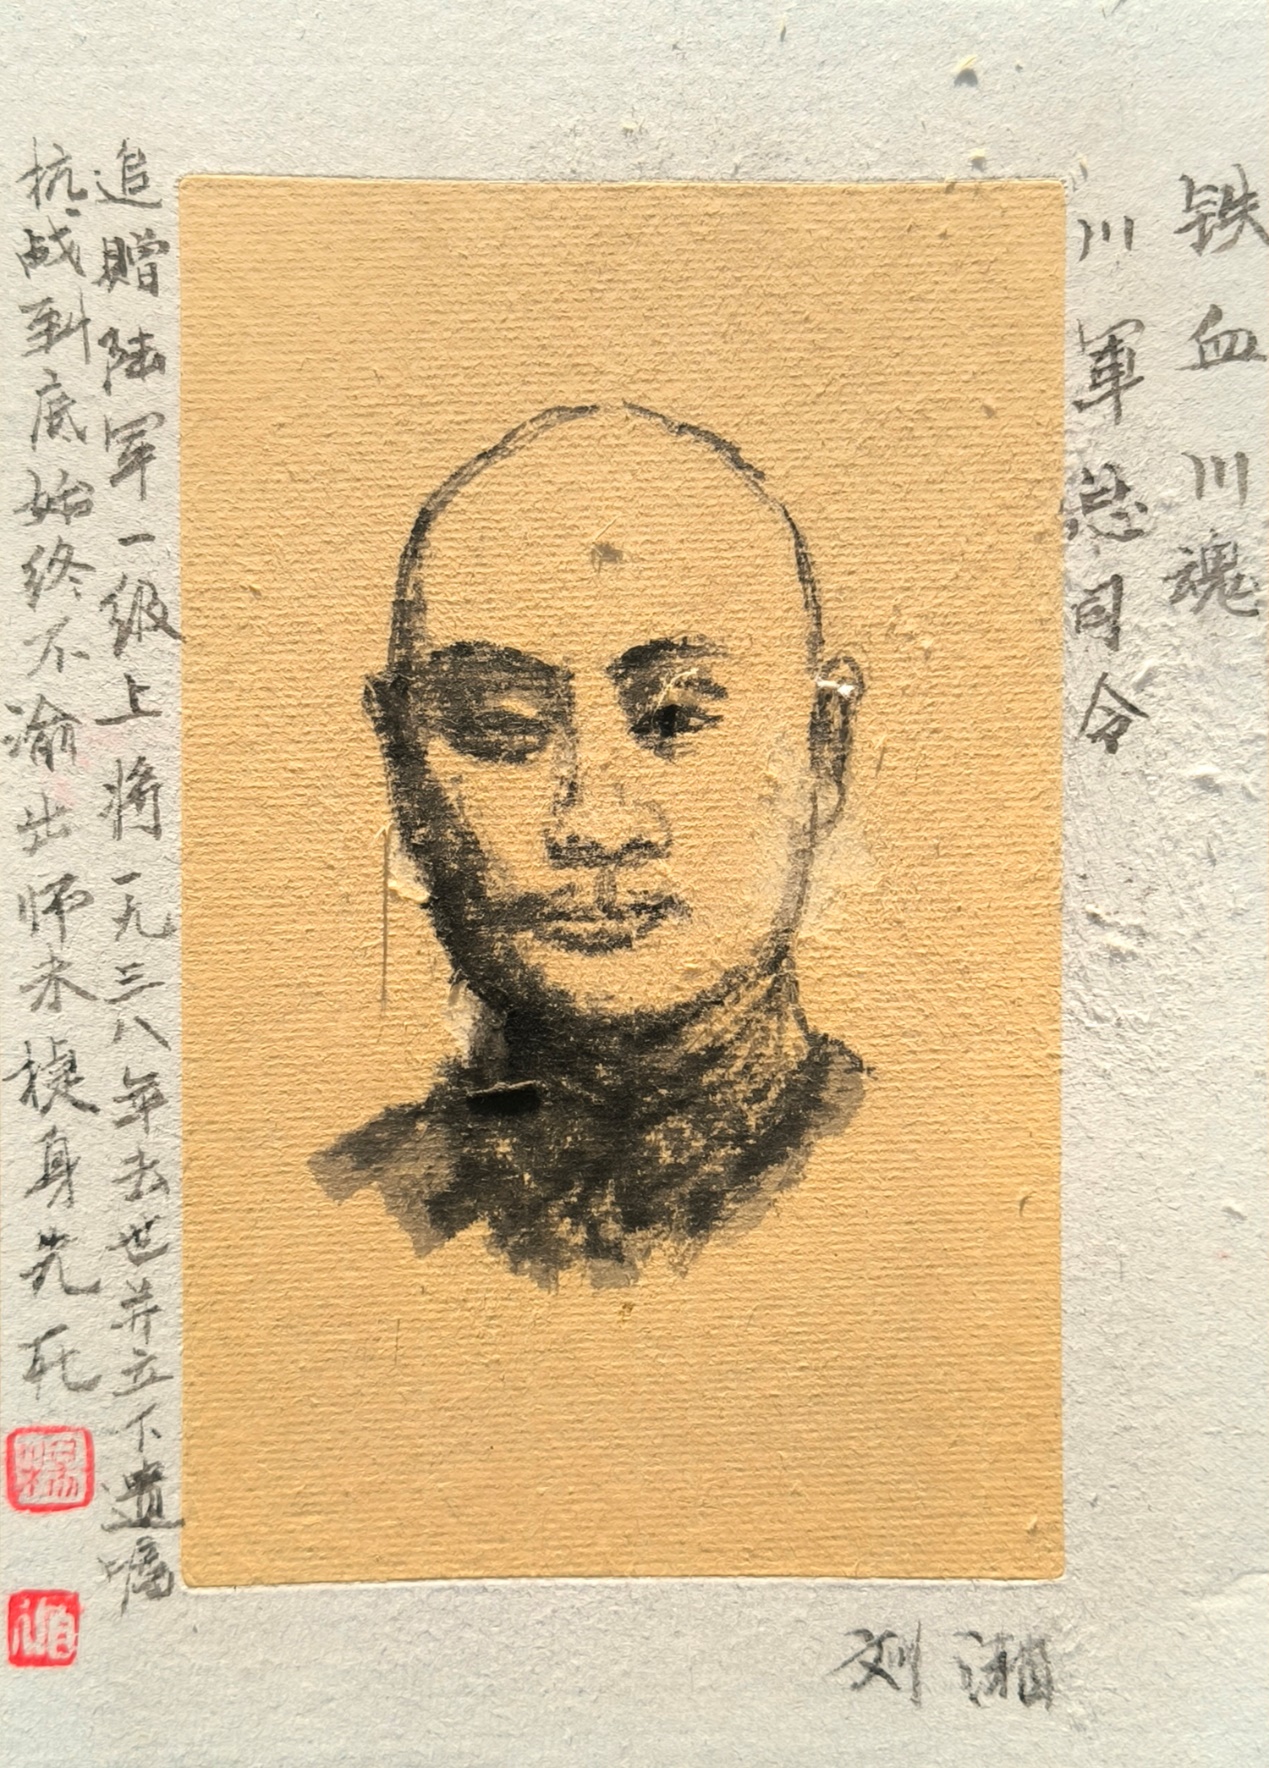 铁血川魂
川軍总司令
刘湘
追贈陆军一级上将一九三八年去世并立下遗嘱
抗战到底始终不渝出师未捷身先死